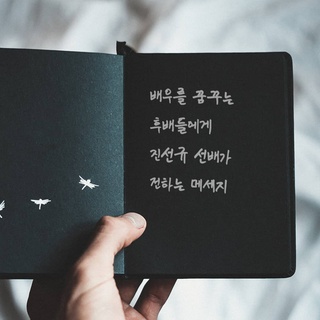 배우를 꿈꾸는
후배들에게
진선규 선배가
전하는 메세지